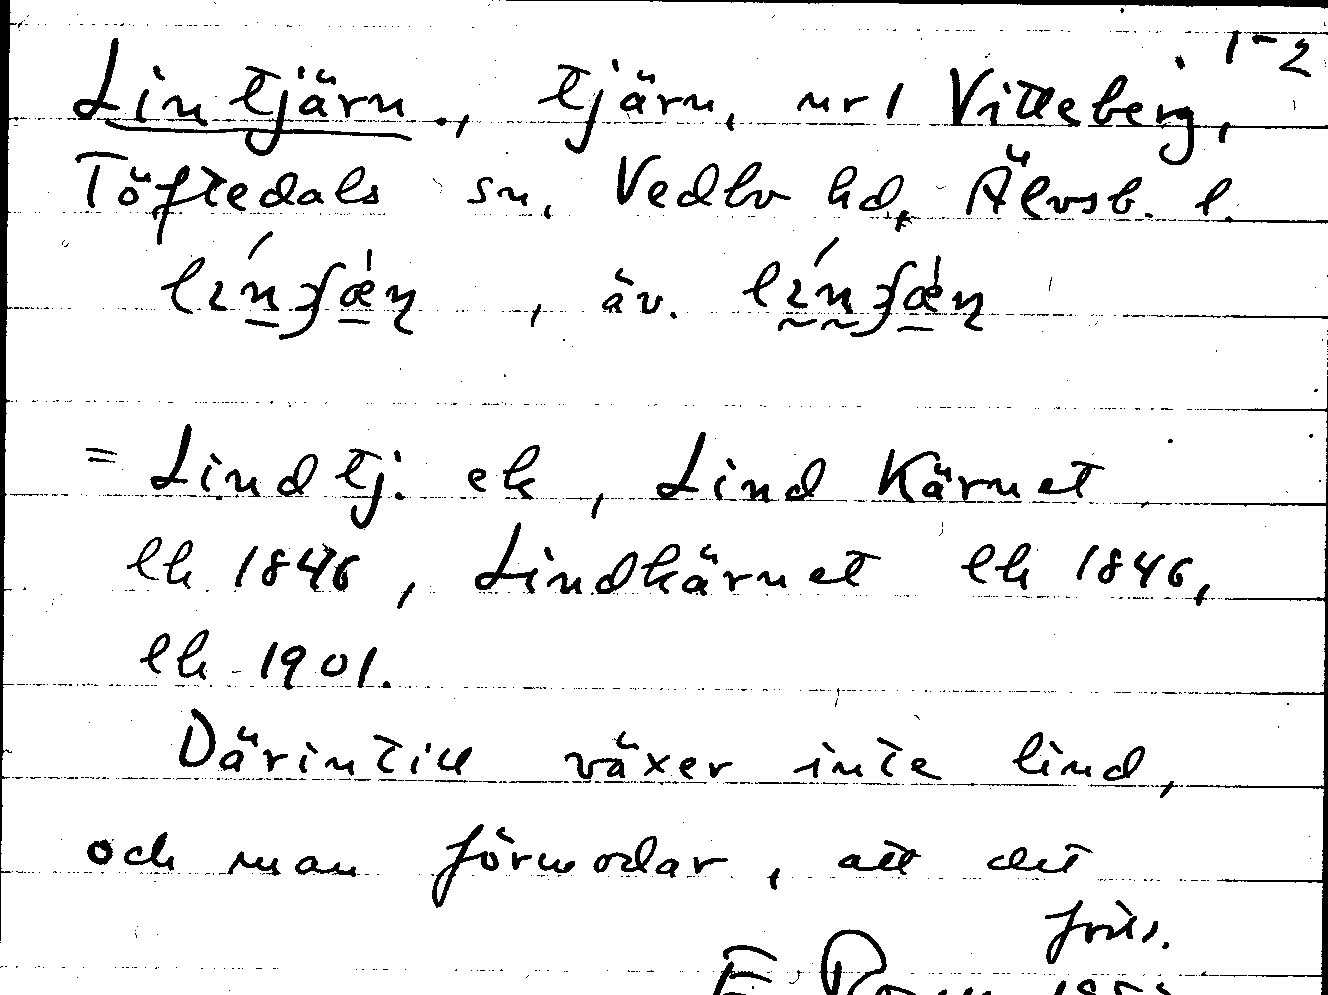 1-2
Lintjärn., tjärn, nr 1 Vitteberg,
Töftedals sn, Vedbo hd, Älvsb. l.
, äv.
= Lindtj. ek, Lind Kärnet
lh 1846, Lindkärnet lh 1846,
lh 1901.
Därintill växer inte lind,
och man förmodar, att det
forts.